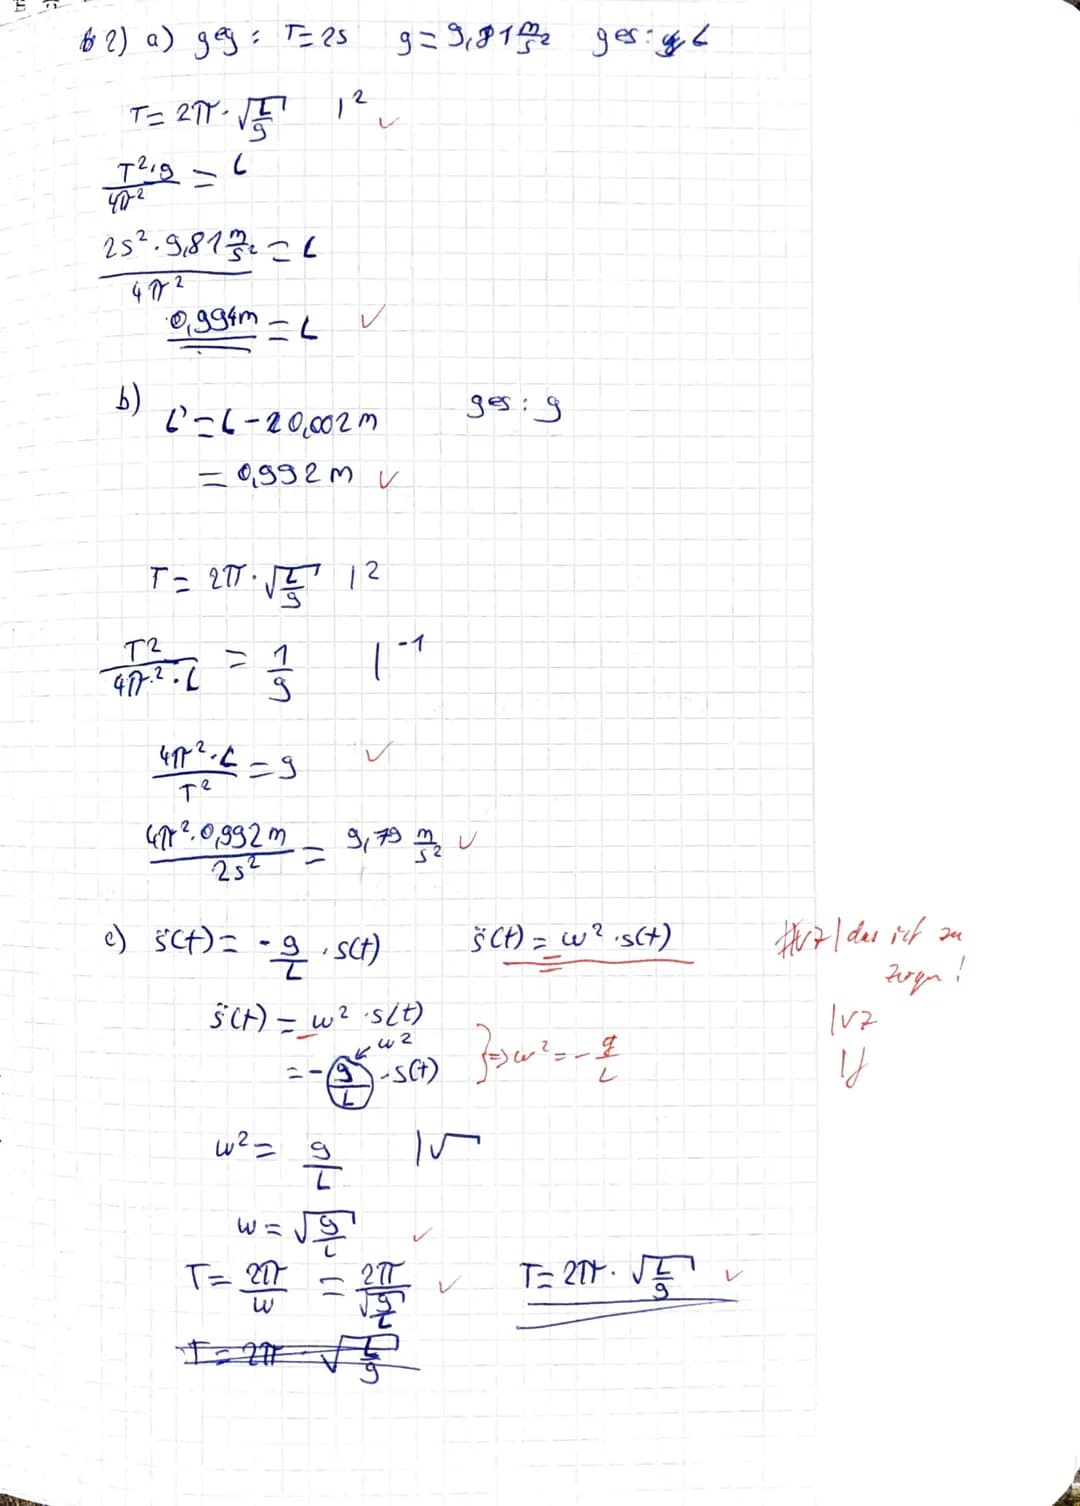 2) a) geg: T=2s g=9,81 m/s² ges: L
T = 2π·√(L/g) |² ✓
T²·g/4π² = L
2s²·9,81 m/s²/4π² = L
0,994m = L ✓
b) L'=L-0,002m ges: g
= 0,992m ✓
T = 2π·√(L/g) |²
T²/4π²·L = 1/g |⁻¹
4π²·L/T² = g ✓
4π²·0,992m/2s² = 9,79 m/s² ✓
c) s̈(t) = -g/L·s(t) s̈(t) = ω²·s(t) das ist zu
zeigen!
s̈(t) = ω²·s(t) |VZ
ω²
= -g/L·s(t) }⇒ω² = -g/L
ω² = g/L |√
ω = √(g/L) ✓
T = 2π/ω = 2π/√(g/L) ✓ T = 2π·√(L/g) ✓
T = 2π √(L/g)